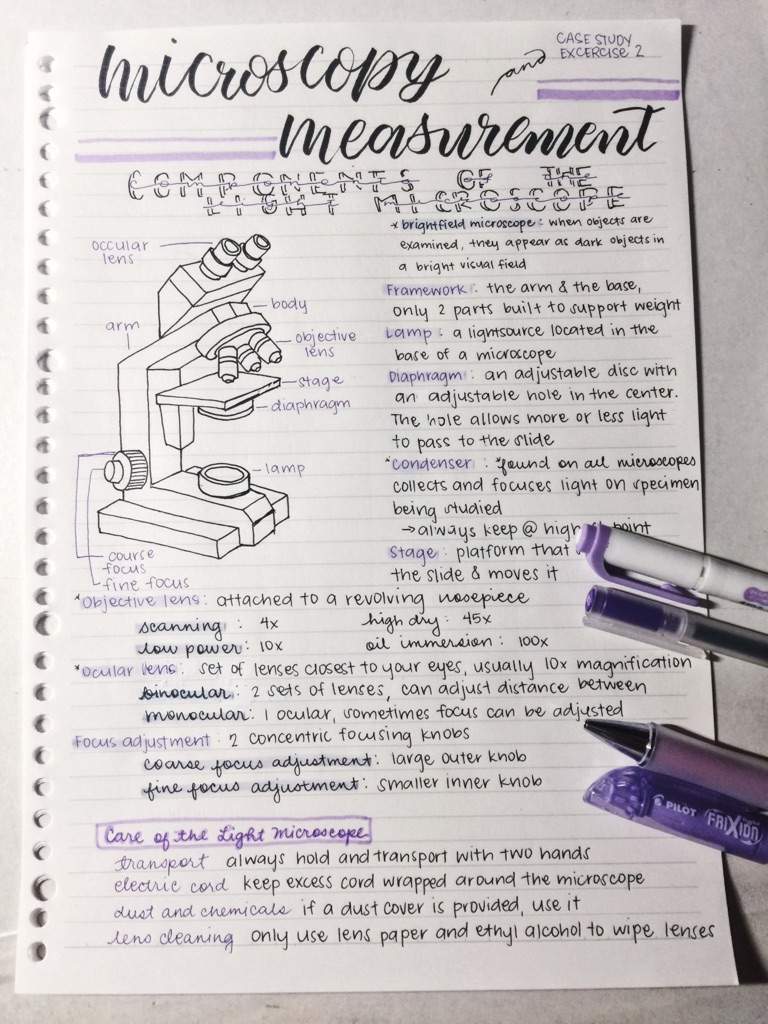 CASE STUDY
EXCERCISE 2
microscopy and
measurement
COMPONENTS OF THE
LIGHT MICROSCOPE
* brightfield microscope: when objects are
examined, they appear as dark objects in
a bright visual field
Framework: the arm & the base,
only 2 parts built to support weight
Lamp: a lightsource located in the
base of a microscope
Diaphragm: an adjustable disc with
an adjustable hole in the center.
The hole allows more or less light
to pass to the slide
*Condenser: *found on all microscopes
collects and focuses light on specimen
being studied
→always keep @ point
Stage: platform that
the slide & moves it
occular
lens
body
arm
objective
lens
stage
diaphragm
lamp
course
focus
fine focus
*Objective lens: attached to a revolving nosepiece
scanning: 4x high dry: 45x
low power: 10x oil immersion: 100x
*Ocular lens: set of lenses closest to your eyes, usually 10x magnification
binocular: 2 sets of lenses, can adjust distance between
monocular: 1 ocular, sometimes focus can be adjusted
Focus adjustment: 2 concentric focusing knobs
coarse focus adjustment: large outer knob
fine focus adjustment: smaller inner knob
Care of the Light Microscope
transport always hold and transport with two hands
electric cord keep excess cord wrapped around the microscope
dust and chemicals if a dust cover is provided, use it
lens cleaning only use lens paper and ethyl alcohol to wipe lenses
PILOT FRIXION